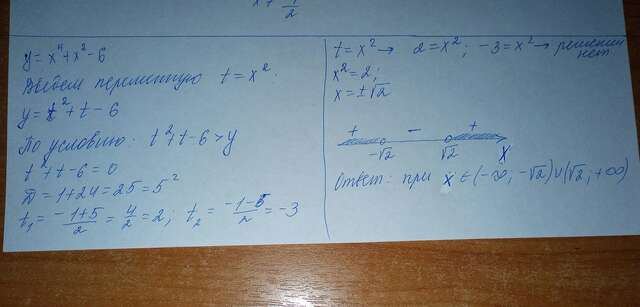 x + 1/2
y = x⁴ + x² - 6
Введем переменную t = x².
y = t² + t - 6
По условию: t² + t - 6 > y
t² + t - 6 = 0
D = 1 + 24 = 25 = 5²
t₁ = (-1+5)/2 = 4/2 = 2; t₂ = (-1-5)/2 = -3
t = x² → 2 = x²; -3 = x² → решений
нет.
x² = 2;
x = ±√2
+ - +
-√2 √2 x
Ответ: при x ∈ (-∞; -√2) ∪ (√2; +∞)